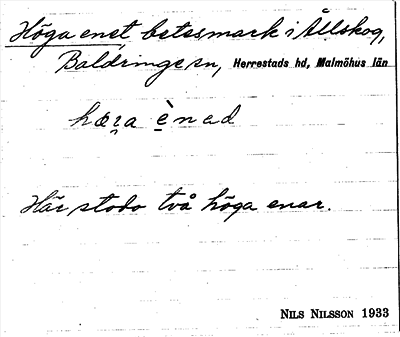 Höga enet betesmark i Ållskog,
Baldringe sn, Herrestads hd, Malmöhus län
Här stodo två höga enar.
NILS NILSSON 1933